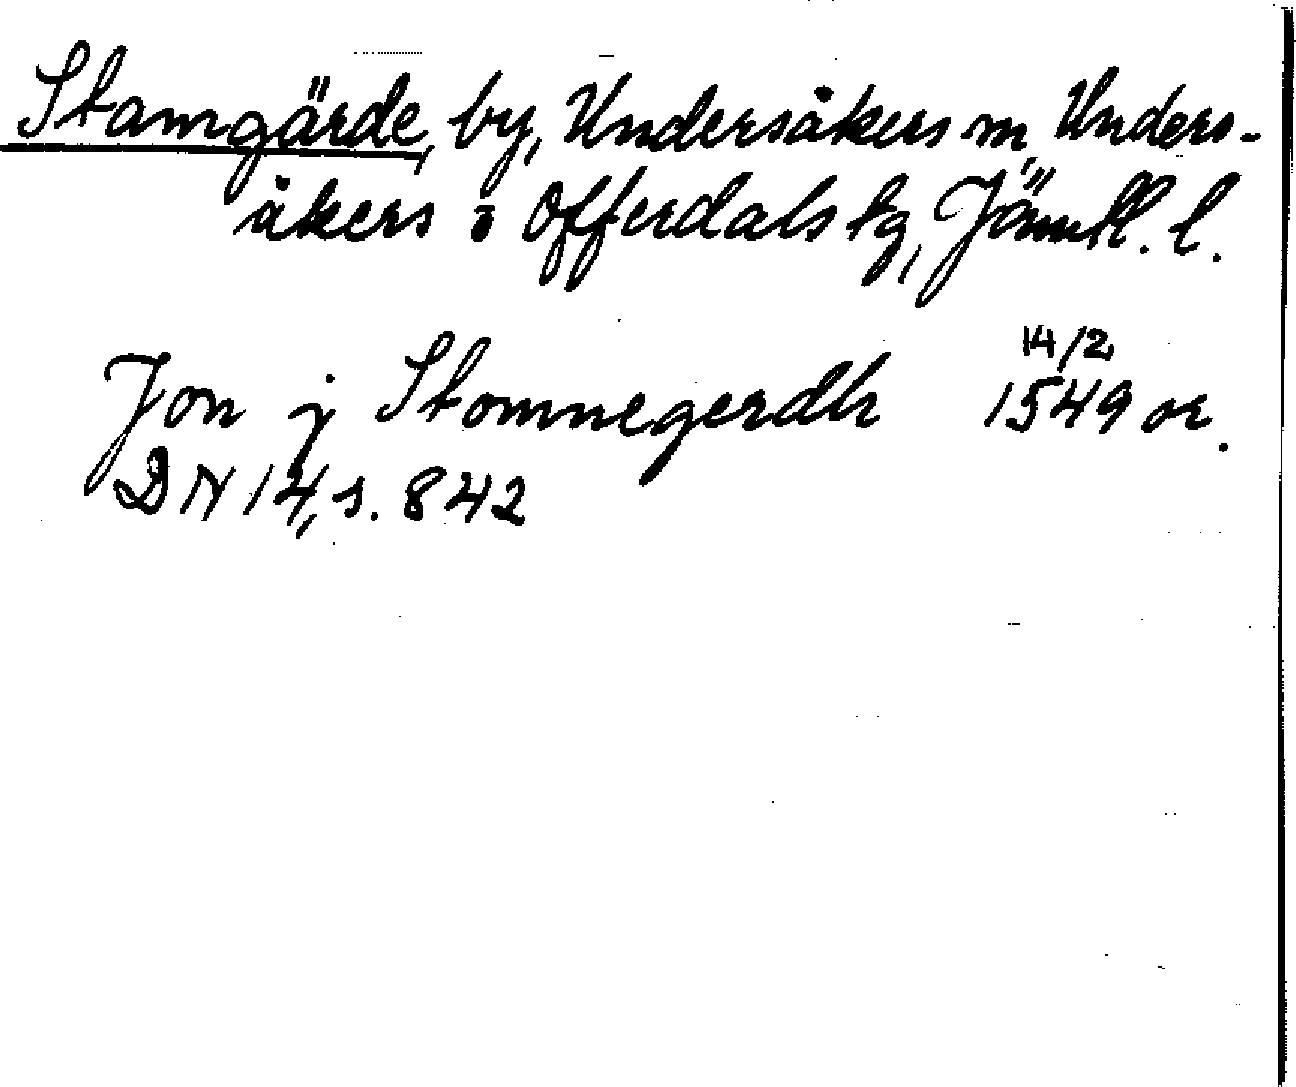 Stamgärde, by, Undersåkers sn, Unders-
åkers o Offerdals tg, Jämtl. l.
Jon j Stomnegerdh 14/2 1549 or.
DN 14, s. 842